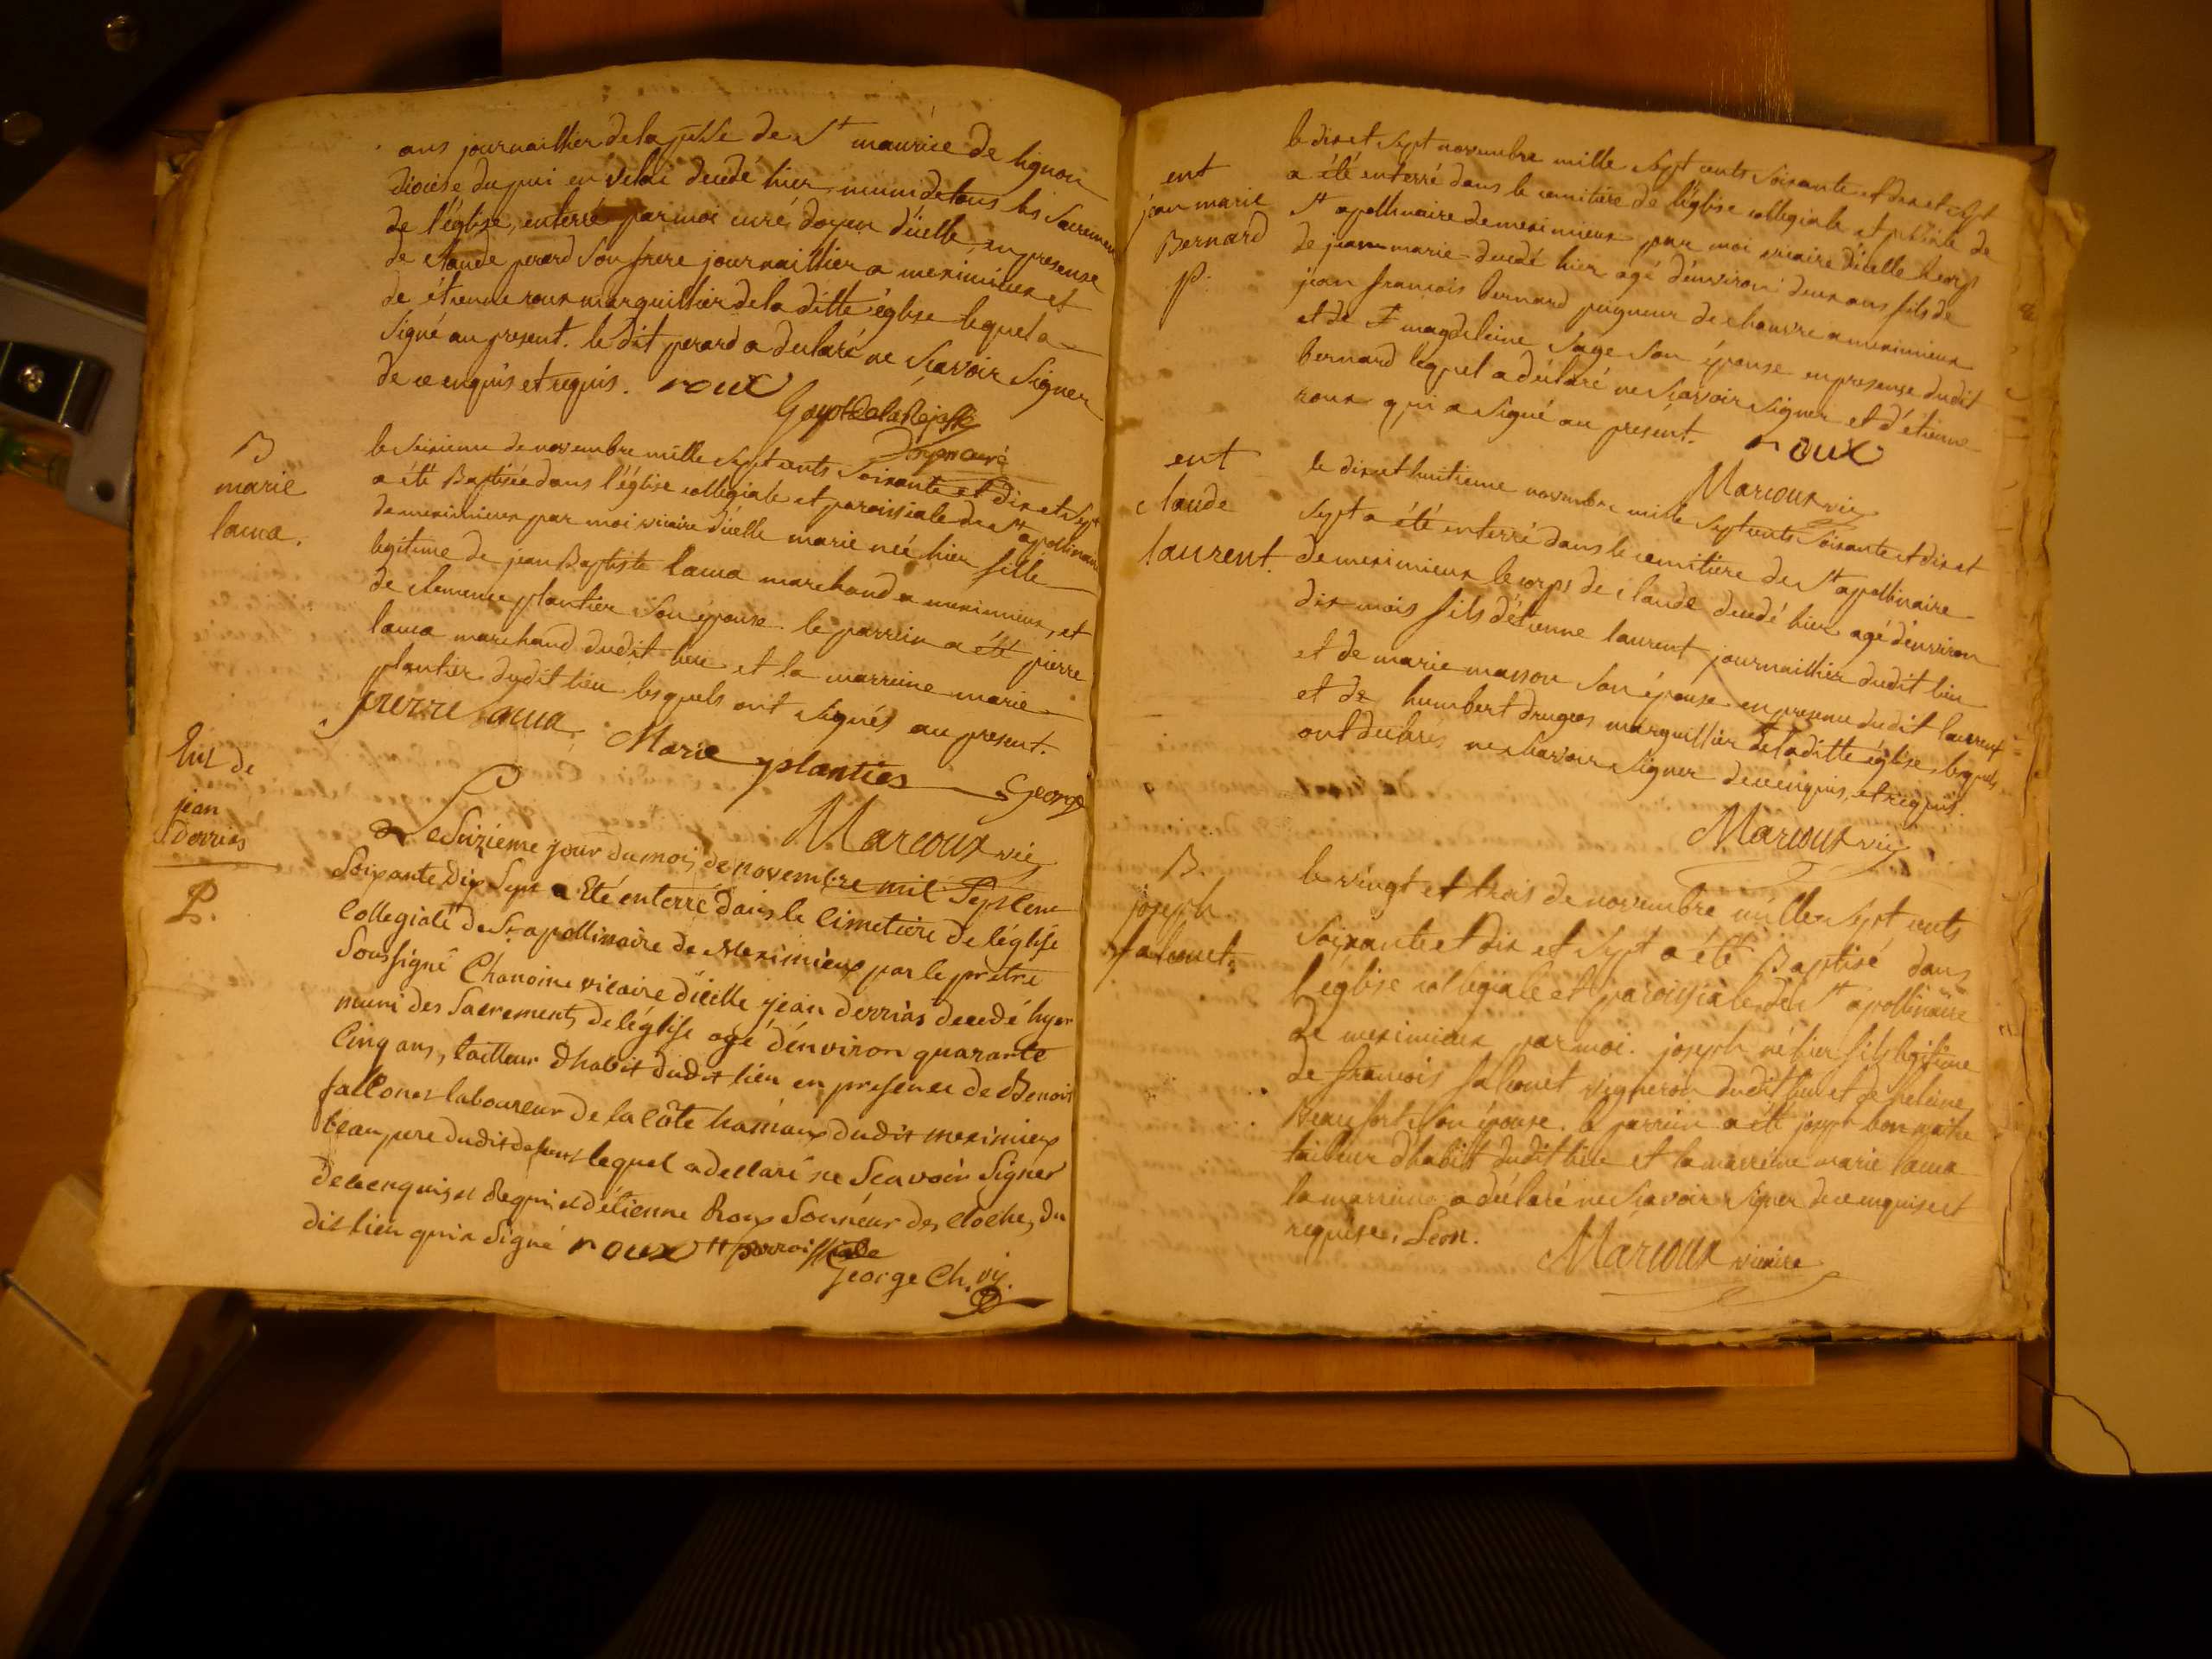 ans journaillier de la psse de St maurice de lignon
diocèse du pui en vélai décédé hier muni de tous les Sacremens
de l'église, enterré par moi curé doyen d'icelle en presense
de claude perard son frere journaillier a meximieux et
de étienne roux marguillier de la ditte église lequel a
signé au present. le dit perard a declaré ne scavoir signer
de ce enquis et requis. roux
doyen curé
B
marie
laura.
le seizieme de novembre mille sept cents soixante et dix et sept
a été Baptisée dans l'église collegiale et paroissiale de St apollinaire
de meximieux par moi vicaire d'icelle marie née hier fille
legitime de jean Baptiste laura marchand a meximieux, et
de clemence plantier son épouse. le parrein a été pierre
laura marchand dudit lieu et la marreine marie
plantier dudit lieu lesquels ont signés au present.
pierre laura Marie plantier George
Marcoux vic
Ent de
jean
derrias
P.
Le Suzieme jour du mois de novembre mil Sept Cent
Soixante dix Sept a Eté enterré dans le Cimetiere de léglise
Collegiale de St apollinaire de Meximieux par le prêtre
Soussigné Chanoine vicaire dicelle jean derrias decedé hyer
muni des Sacrements de léglise agé dénviron quarante
Cinq ans, tailleur dhabit dudit lieu en presence de Benoit
fallonet laboureur de la Côte hamaux dudit meximieux
beau pere dudit defunt lequel a declaré ne Scavoir Signer
de ce enquis et Requis et détienne Roux Sonneur des cloches du
dit lieu qui a Signé roux ++ parroissiale
George Ch. vic.
ent
jean marie
Bernard
P.
le dix et sept novembre mille sept cents soixante et dix et sept
a été enterré dans le cemitière de l'église collegiale et pssiale de
St apollinaire de meximieux par moi vicaire d'icelle le corps
de jean marie decedé hier agé d'environ deux ans fils de
jean francois Bernard peigneur de chanvre a meximieux
et de magdeleine sage son épouse en presense dudit
bernard lequel a déclaré ne scavoir signer et d'étienne
roux qui a signé au présent. roux
Marcoux vic
ent
claude
laurent.
le dix et huitieme novembre mille sept cents soixante et dix et
sept a été enterré dans le cemitiere de St apollinaire
de meximieux le corps de claude decedé hier agé d'environ
dix mois fils d'étienne laurent journaillier dudit lieu
et de marie masson son épouse en presense dudit laurent
et de humbert druges marguillier de la ditte église lesquels
ont declarés ne scavoir signer de ce enquis, et requis.
Marcoux vic
B.
joseph
falconet.
le vingt et trois de novembre mille sept cents
soixante et dix et sept a été Baptisé dans
l'église collegiale et paroissiale de St apollinaire
de meximieux par moi. joseph né hier fils legitime
de francois falconet vigneron dudit lieu et de heleine
Beaufort son épouse. le parrein a été joseph bon maitre
tailleur d'habit dudit lieu et la marreine marie laura
la marreine a déclaré ne scavoir signer de ce enquise et
requise.
Marcoux vicaire